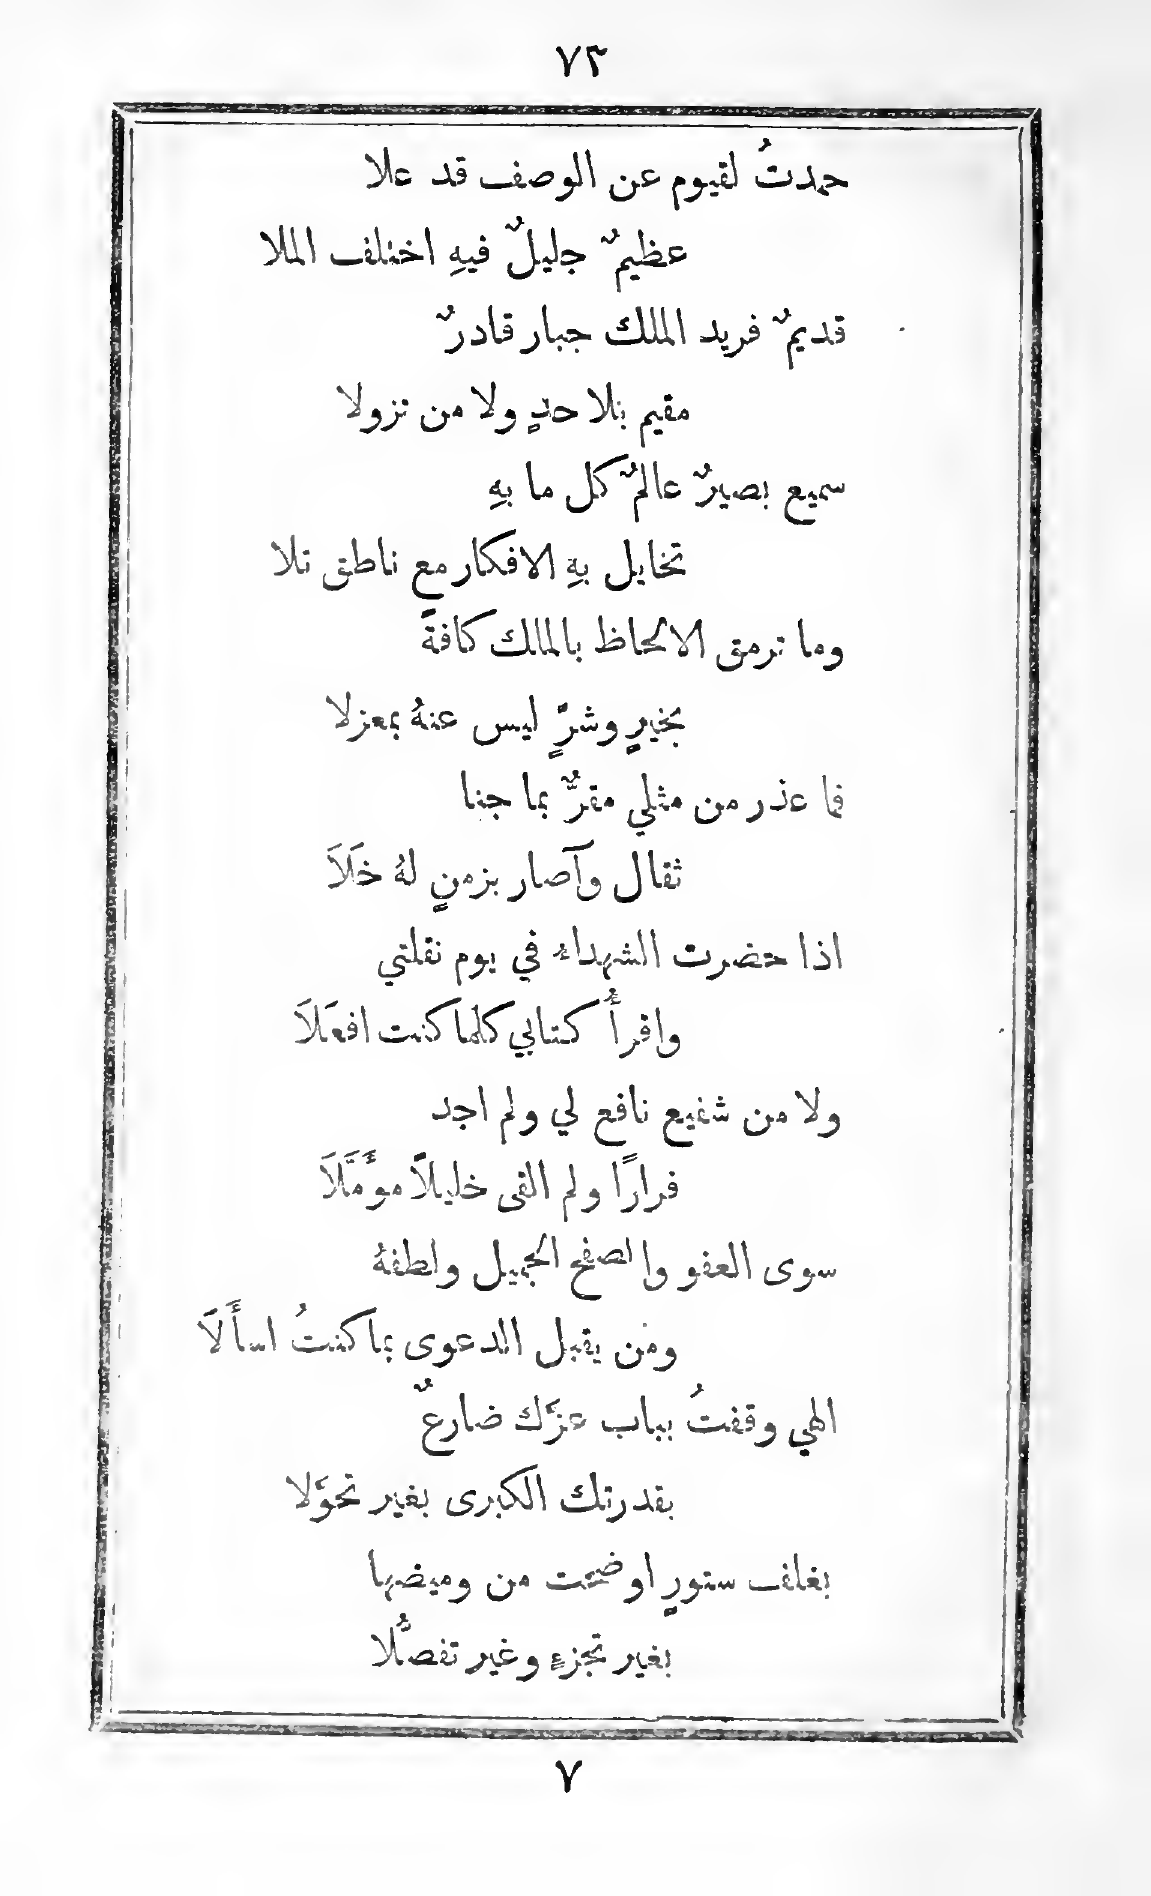 ٧٣
حمدتُ لقيوم عن الوصف قد علا
عظيمٌ جليلٌ فيهِ اختلف الملا
قديمٌ فريد الملك جبار قادرٌ
مقيم بلا حدٍ ولا من نزولا
سميع بصيرٌ عالمٌ كل ما بهِ
تخايل بهِ الافكار مع ناطق تلا
وما ترمق الالحاظ بالمالك كافةً
بخيرٍ وشرٍّ ليس عنهُ بمعزلا
فما عذر من مثلي مقرٌّ بما جنا
ثقال وآصار بزمنٍ لهُ خَلَاَ
اذا حضرت الشهداء في يوم نقلتي
وافرأُ كتابي كلما كنت افعَلاَ
ولا من شفيع نافع لي ولم اجد
فرارًا ولم القى خليلاً موَّمَّلاَ
سوى العفو والصفح الجميل ولطفهُ
ومن يقبل الدعوى بما كنتُ اسأَلاَ
الهي وقفتُ بباب عزّك ضارعٌ
بقدرتك الكبرى بغير تحوّلا
بغلف ستورٍ اوضحت من وميضها
بغير تجزءٍ وغير تفصُّلا
٧